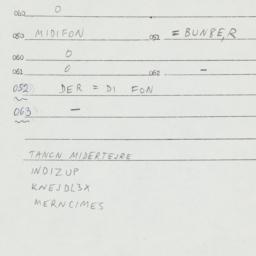 060 0
050 MIDIFON 051 = BUNBE,R
060 0
061 0 062 -
052 DER = DI FON
063 -
TANCN MIDERTEJRE
INDIZUP
KNEJDL3X
MERNCIMES